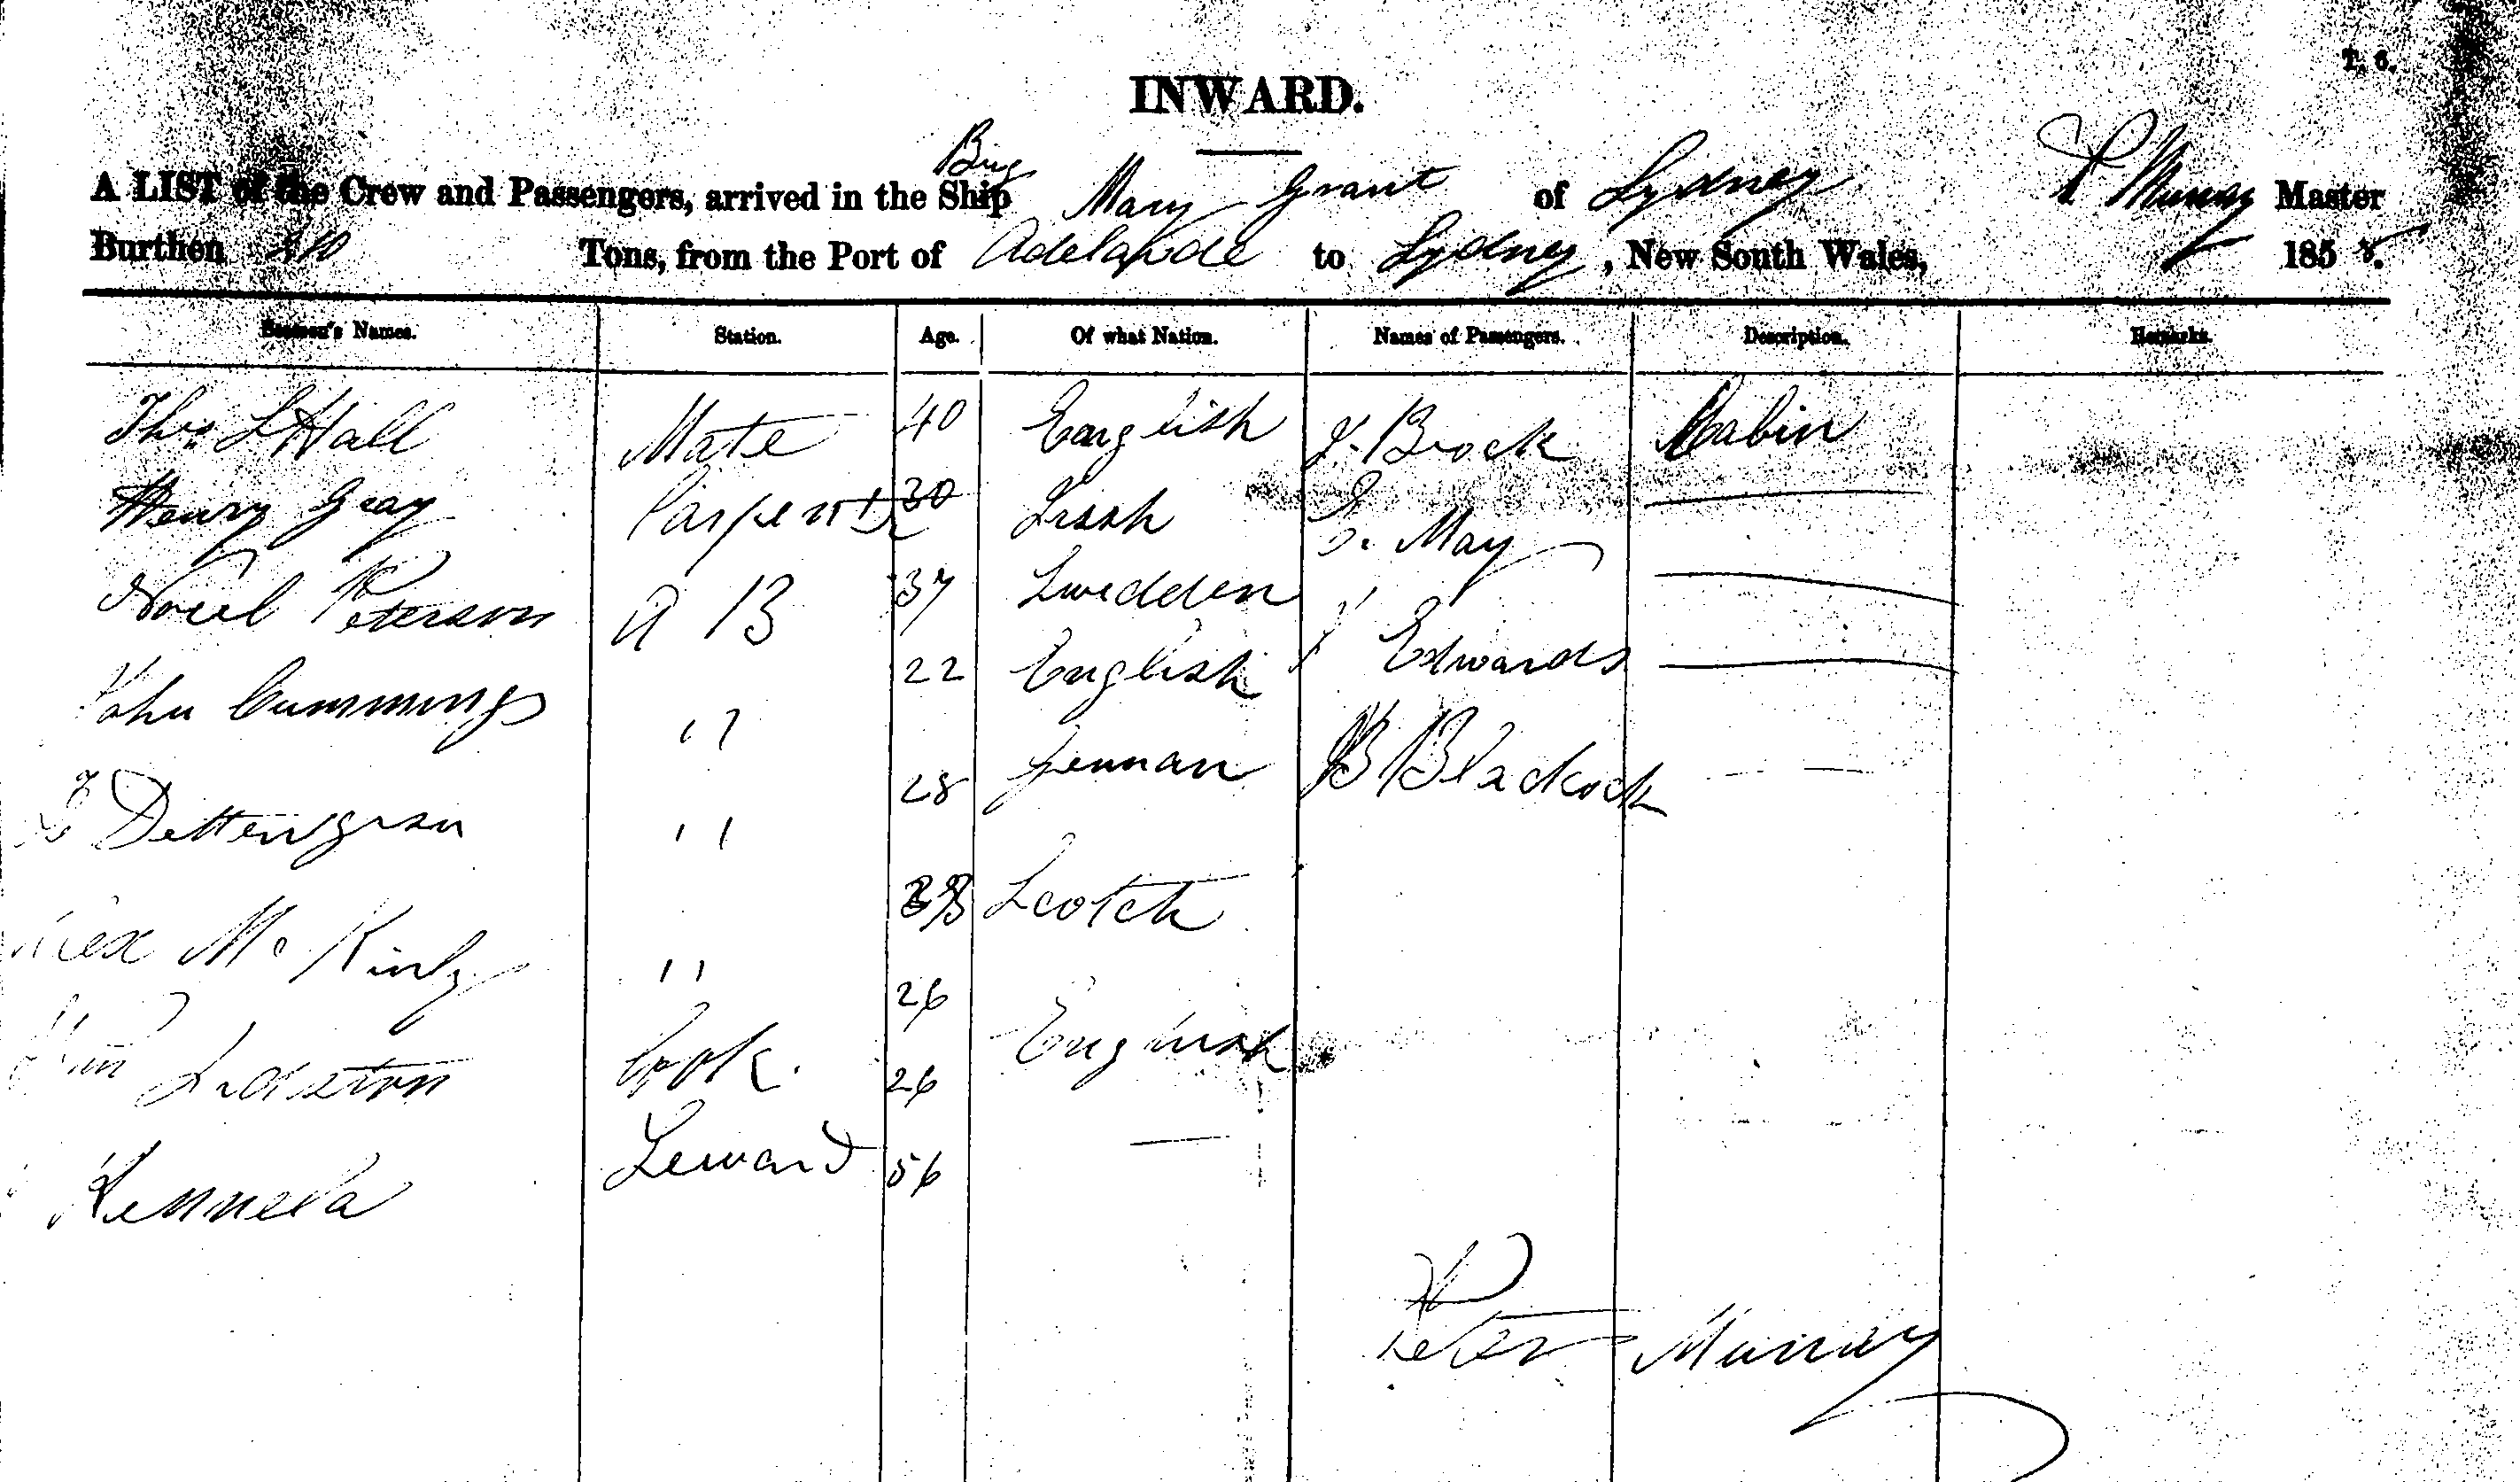 T. 6.
INWARD.
Brig
A LIST of the Crew and Passengers, arrived in the Ship Mary Grant of Sydney P Murray Master
Burthen Tons, from the Port of Adelaide to Sydney, New South Wales, 1858.
Seamen's Names. Station. Age. Of what Nation. Names of Passengers. Description. Remarks.
Thos Hall Mate 40 English Brock Cabin
Henry Gray Carpenter 30 Irish May
Peterson A B 37 Swedden Edwards
John Cummings " 22 English B Bladcock
Dettengran " 28 German
Mc Kinly " Scotch
Cook. 26 English
26
Steward 56
Peter Murray